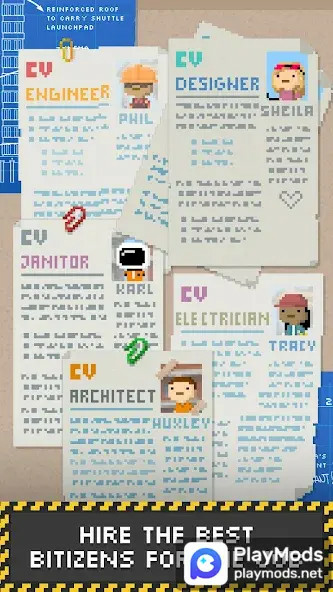 REINFORCED ROOF
TO CARRY SHUTTLE
LAUNCHPAD
CV
ENGINEER
PHIL
CV
DESIGNER
SHEILA
CV
JANITOR
KARL
CV
ELECTRICIAN
TRACY
CV
ARCHITECT
HUXLEY
HIRE THE BEST
BITIZENS FOR
PlayMods
playmods.net